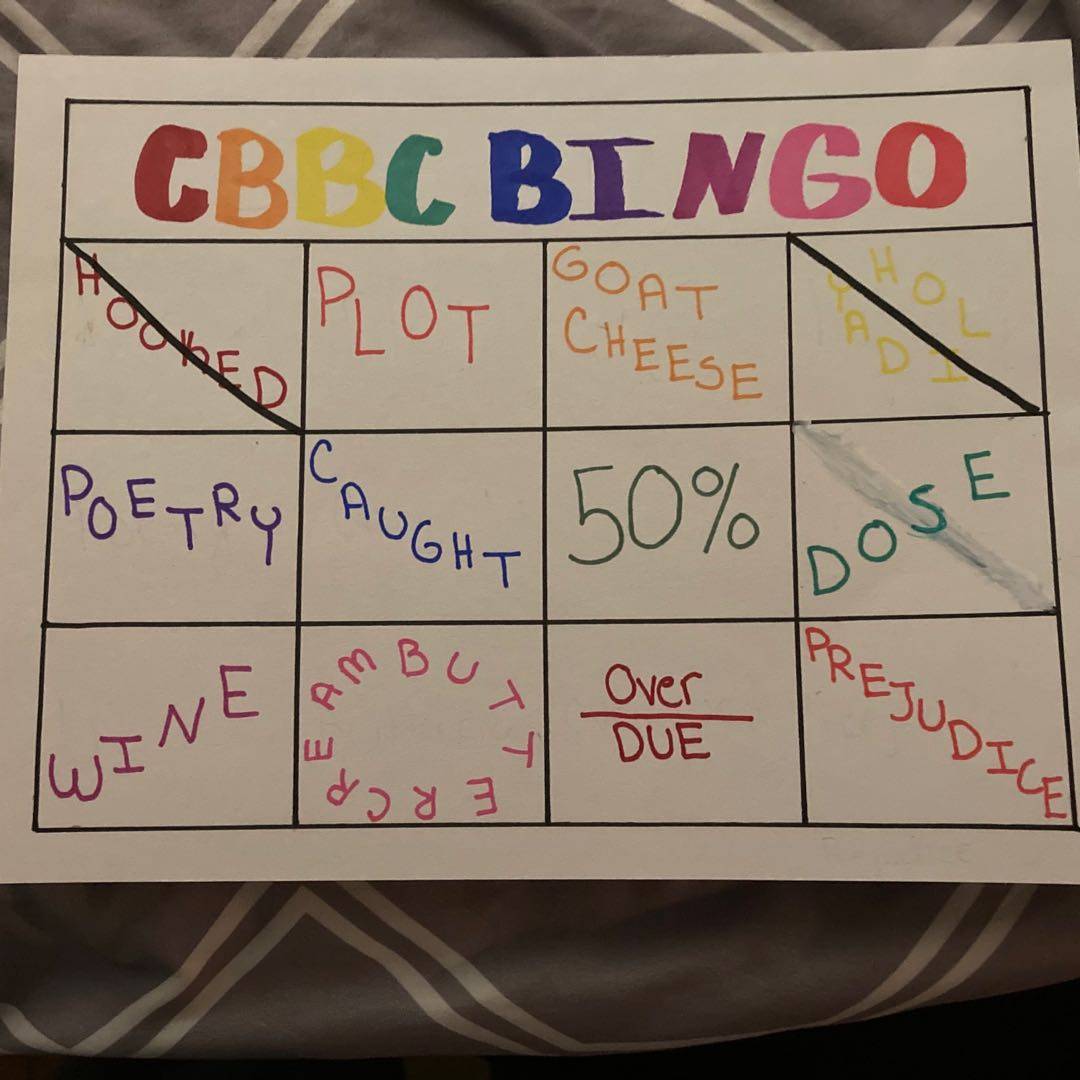 CBBC BINGO
HOOKED
PLOT
GOAT
CHEESE
HOLIDAY
POETRY
CAUGHT
50%
DOSE
WINE
BUTTERCREAM
Over
DUE
PREJUDICE